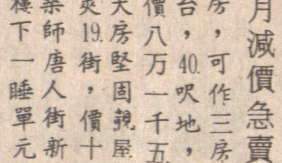 月減價急賣
房，可作三房
台，40.呎地，
價八万一千五
大房堅固靚屋
夾19.街，價十
師唐人街新
樓下一睡單元